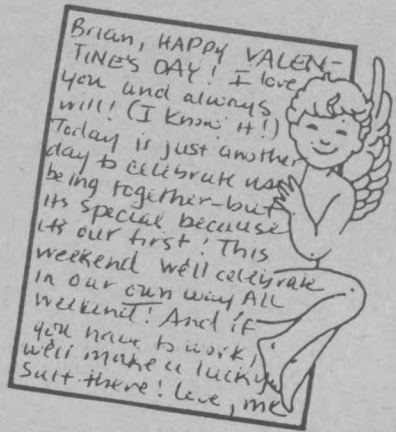 Brian, HAPPY VALEN-
TINE'S DAY! I love
you and always
will! (I know it!)
Today is just another
day to celebrate us
being together-but
its special because
it's our first! This
weekend we'll celebrate
in our own way ALL
weekend! And if
you have to work,
we'll make a lucky
suit there! Love, me